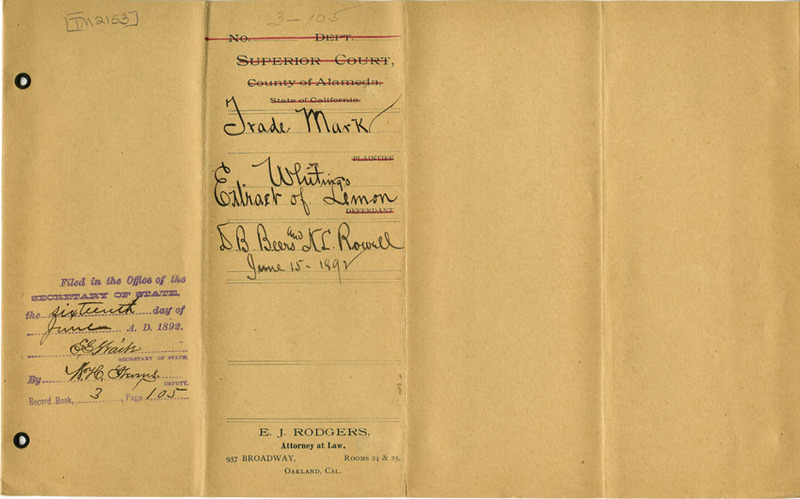 TM2153
3-105
No. DEPT.
SUPERIOR COURT,
County of Alameda,
State of California.
Trade Mark
PLAINTIFF
vs
Whiting's
Extract of Lemon
DEFENDANT
D. B. Beers and N. L. Rowell
June 15 - 1892
Filed in the Office of the
SECRETARY OF STATE,
the sixteenth day of
June A. D. 1892.
E G Waite
SECRETARY OF STATE.
By W. H.
DEPUTY.
Record Book, 3, Page 105
E. J. RODGERS,
Attorney at Law,
957 BROADWAY, ROOMS 24 & 25,
OAKLAND, CAL.